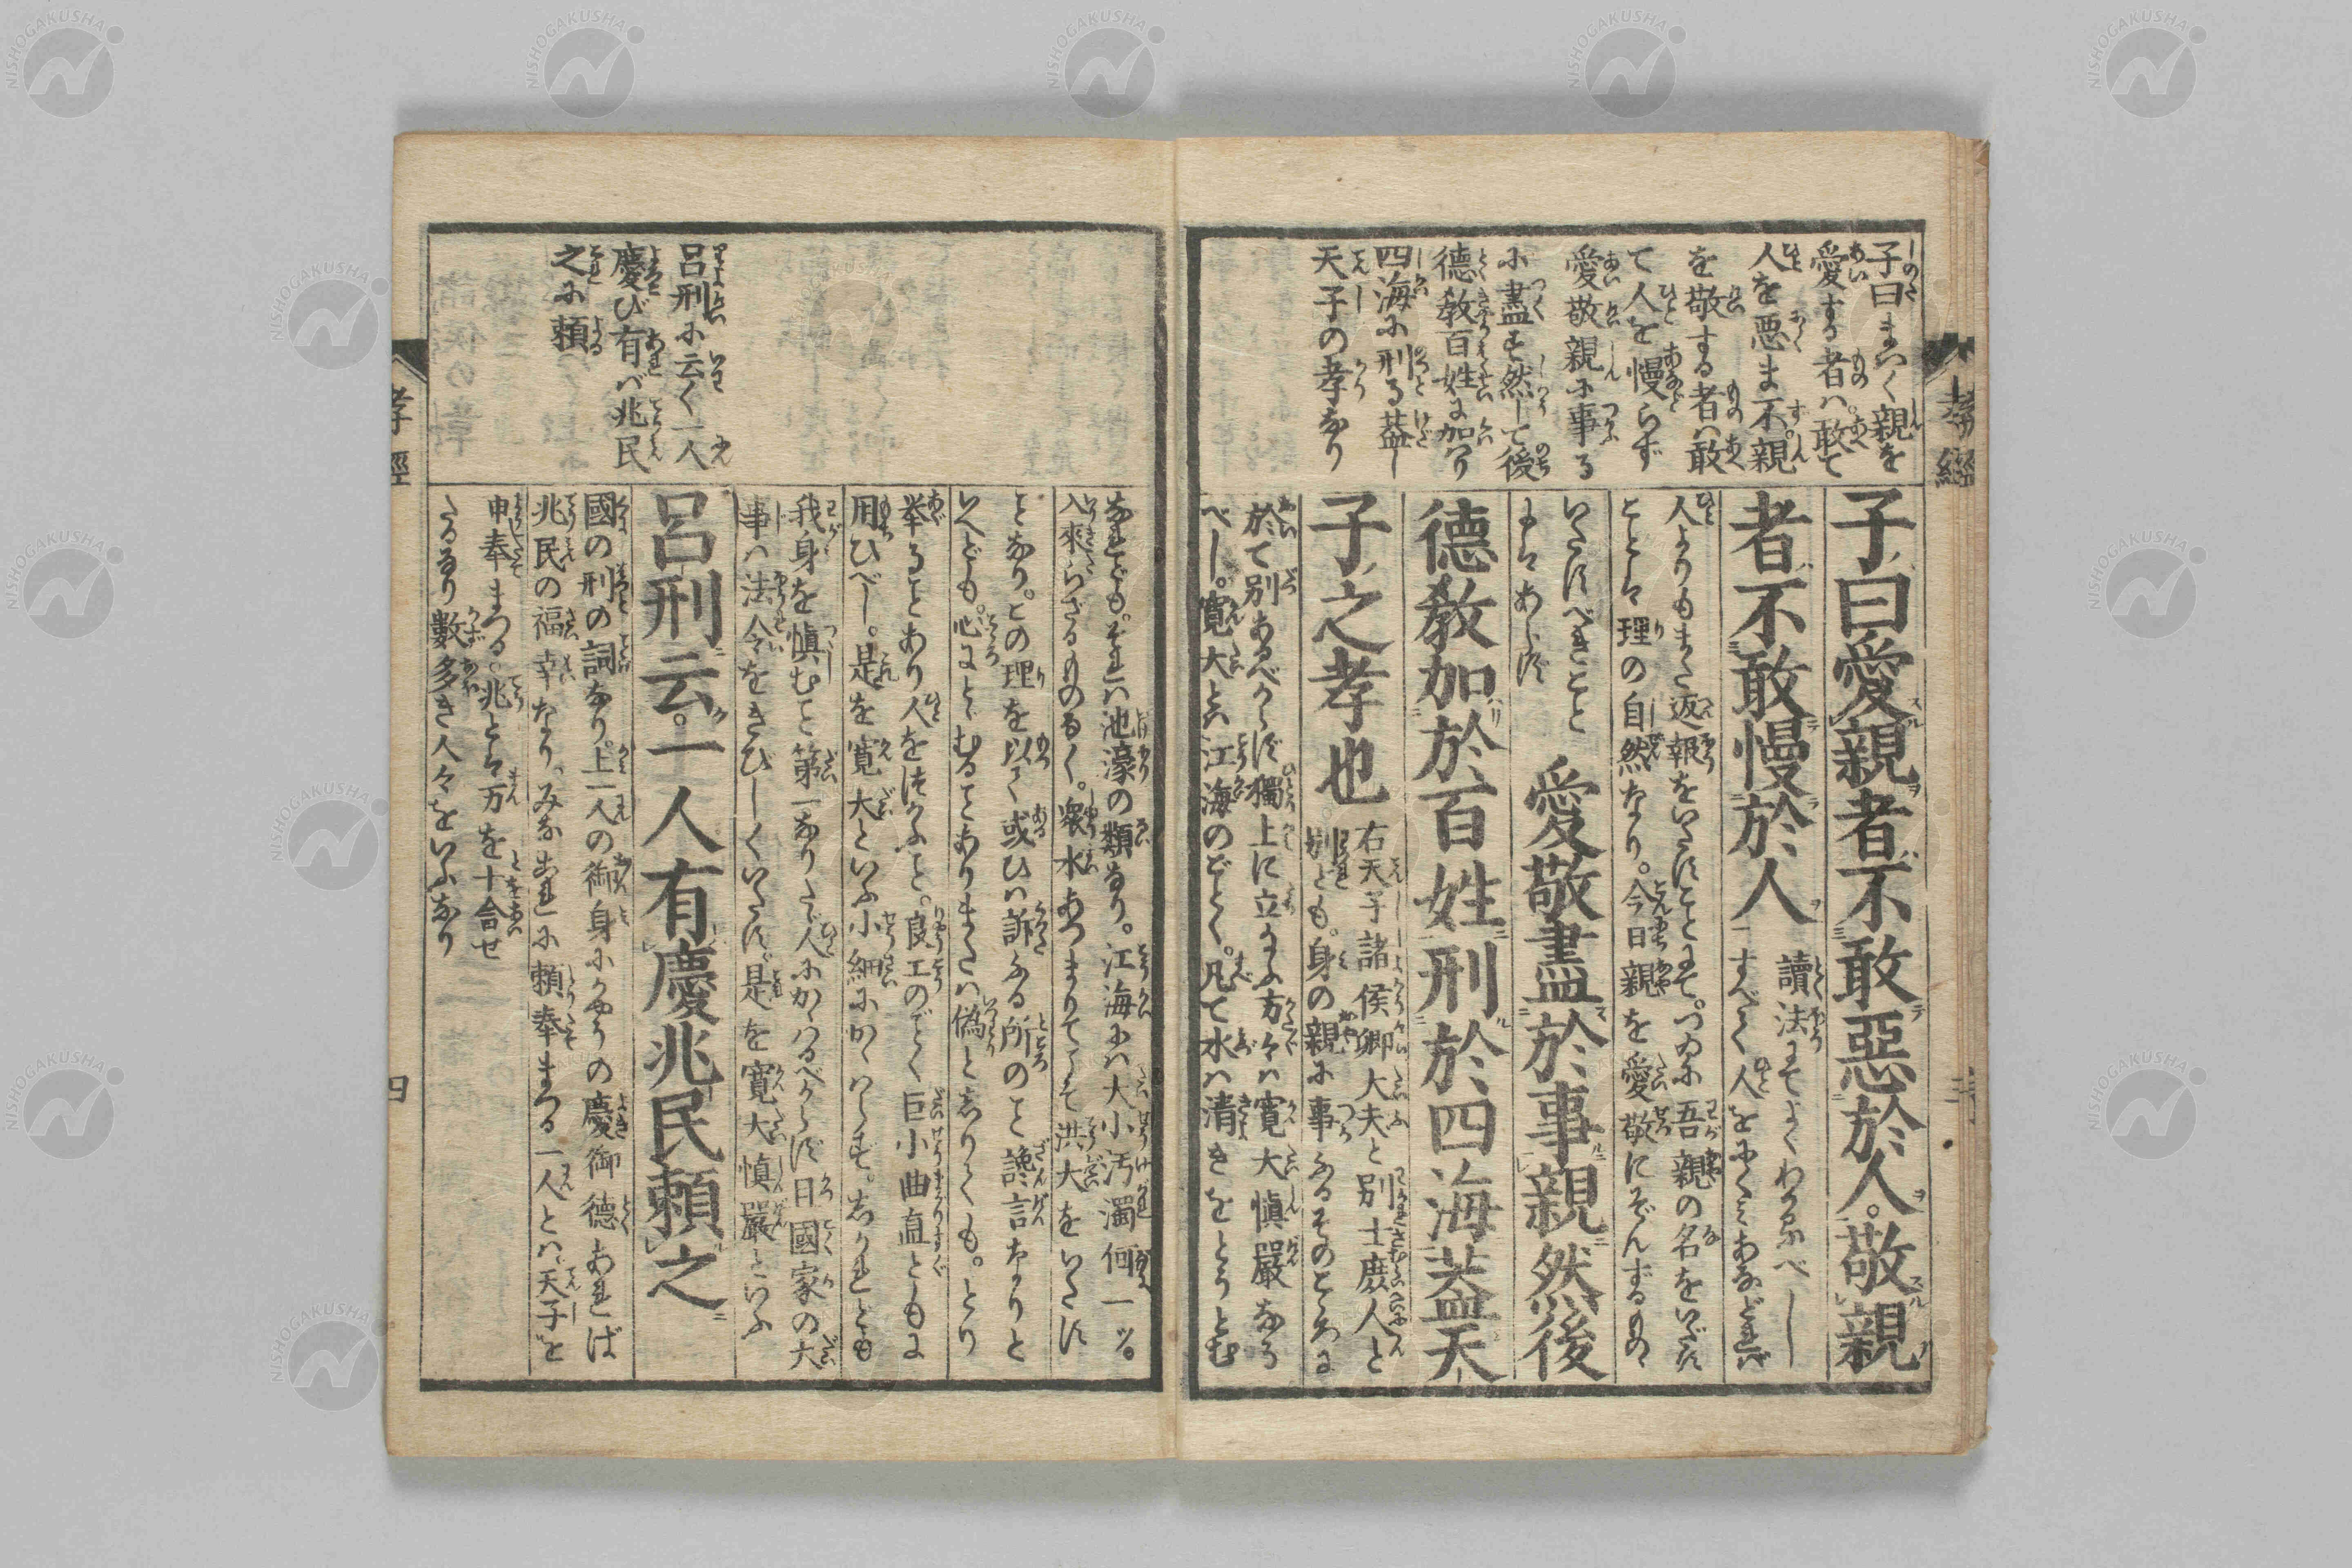 孝經
子曰まく親を
愛する者ハ。敢て
人を悪ま不。親
を敬する者ハ敢
て人を慢らず
愛敬親に事る
に盡き然して後
德教百姓に加り
四海に刑る蓋し
天子の孝なり
子曰愛親者不敢惡於人。敬親
者不敢慢於人
讀法にてよくわかるべし
すべて人をにくみあなどれば
人よりもまた返報をいたすことにて。つゐに吾親の名をいだす
ことは理の自然なり。今日親を愛敬にぞんずるものゝ
いたすべきこと
にはあらず
愛敬盡於事親然後
德教加於百姓刑於四海蓋天
子之孝也
右天子諸侯卿大夫と別士庶人と
別ども。身の親に事ふるそのところは
於て別あるべからず獨上に立たふ方々ハ寛大慎嚴なる
べし。寛大とハ江海のごとく。凡て水ハ清きをとうとむ
なれども。それハ池濠の類なり。江海にハ大小汚濁何一ツ。
入來らざるものなく。衆水あつまりてこそ洪大をいたす
となり。この理を以て或ひハ訴ふる所のこと讒言なりと
いへども。心にとゞむることありまたハ偽としりても。とり
挙ることあり人をつかふこと。良工のごとく巨小曲直ともに
用ひべし。是を寛大といふ小細にかゝハらず。しかれども
我身を慎むこと第一なりたゞ人にかゝハるべからず曰國家の大
事ハ法令をきびしくいたす。是を寛大慎嚴といふ
呂刑云。一人有慶兆民賴之
國の刑の詞なり。上一人の御身にかゝりの慶御德あれば
兆民の福幸なり。みなこれに賴奉まつる一人とハ。天子を
申奉まつる。兆とハ万を十合せ
たるなり數多き人々をいふなり
呂刑に云く一人
慶び有バ兆民
之に賴
孝經
四